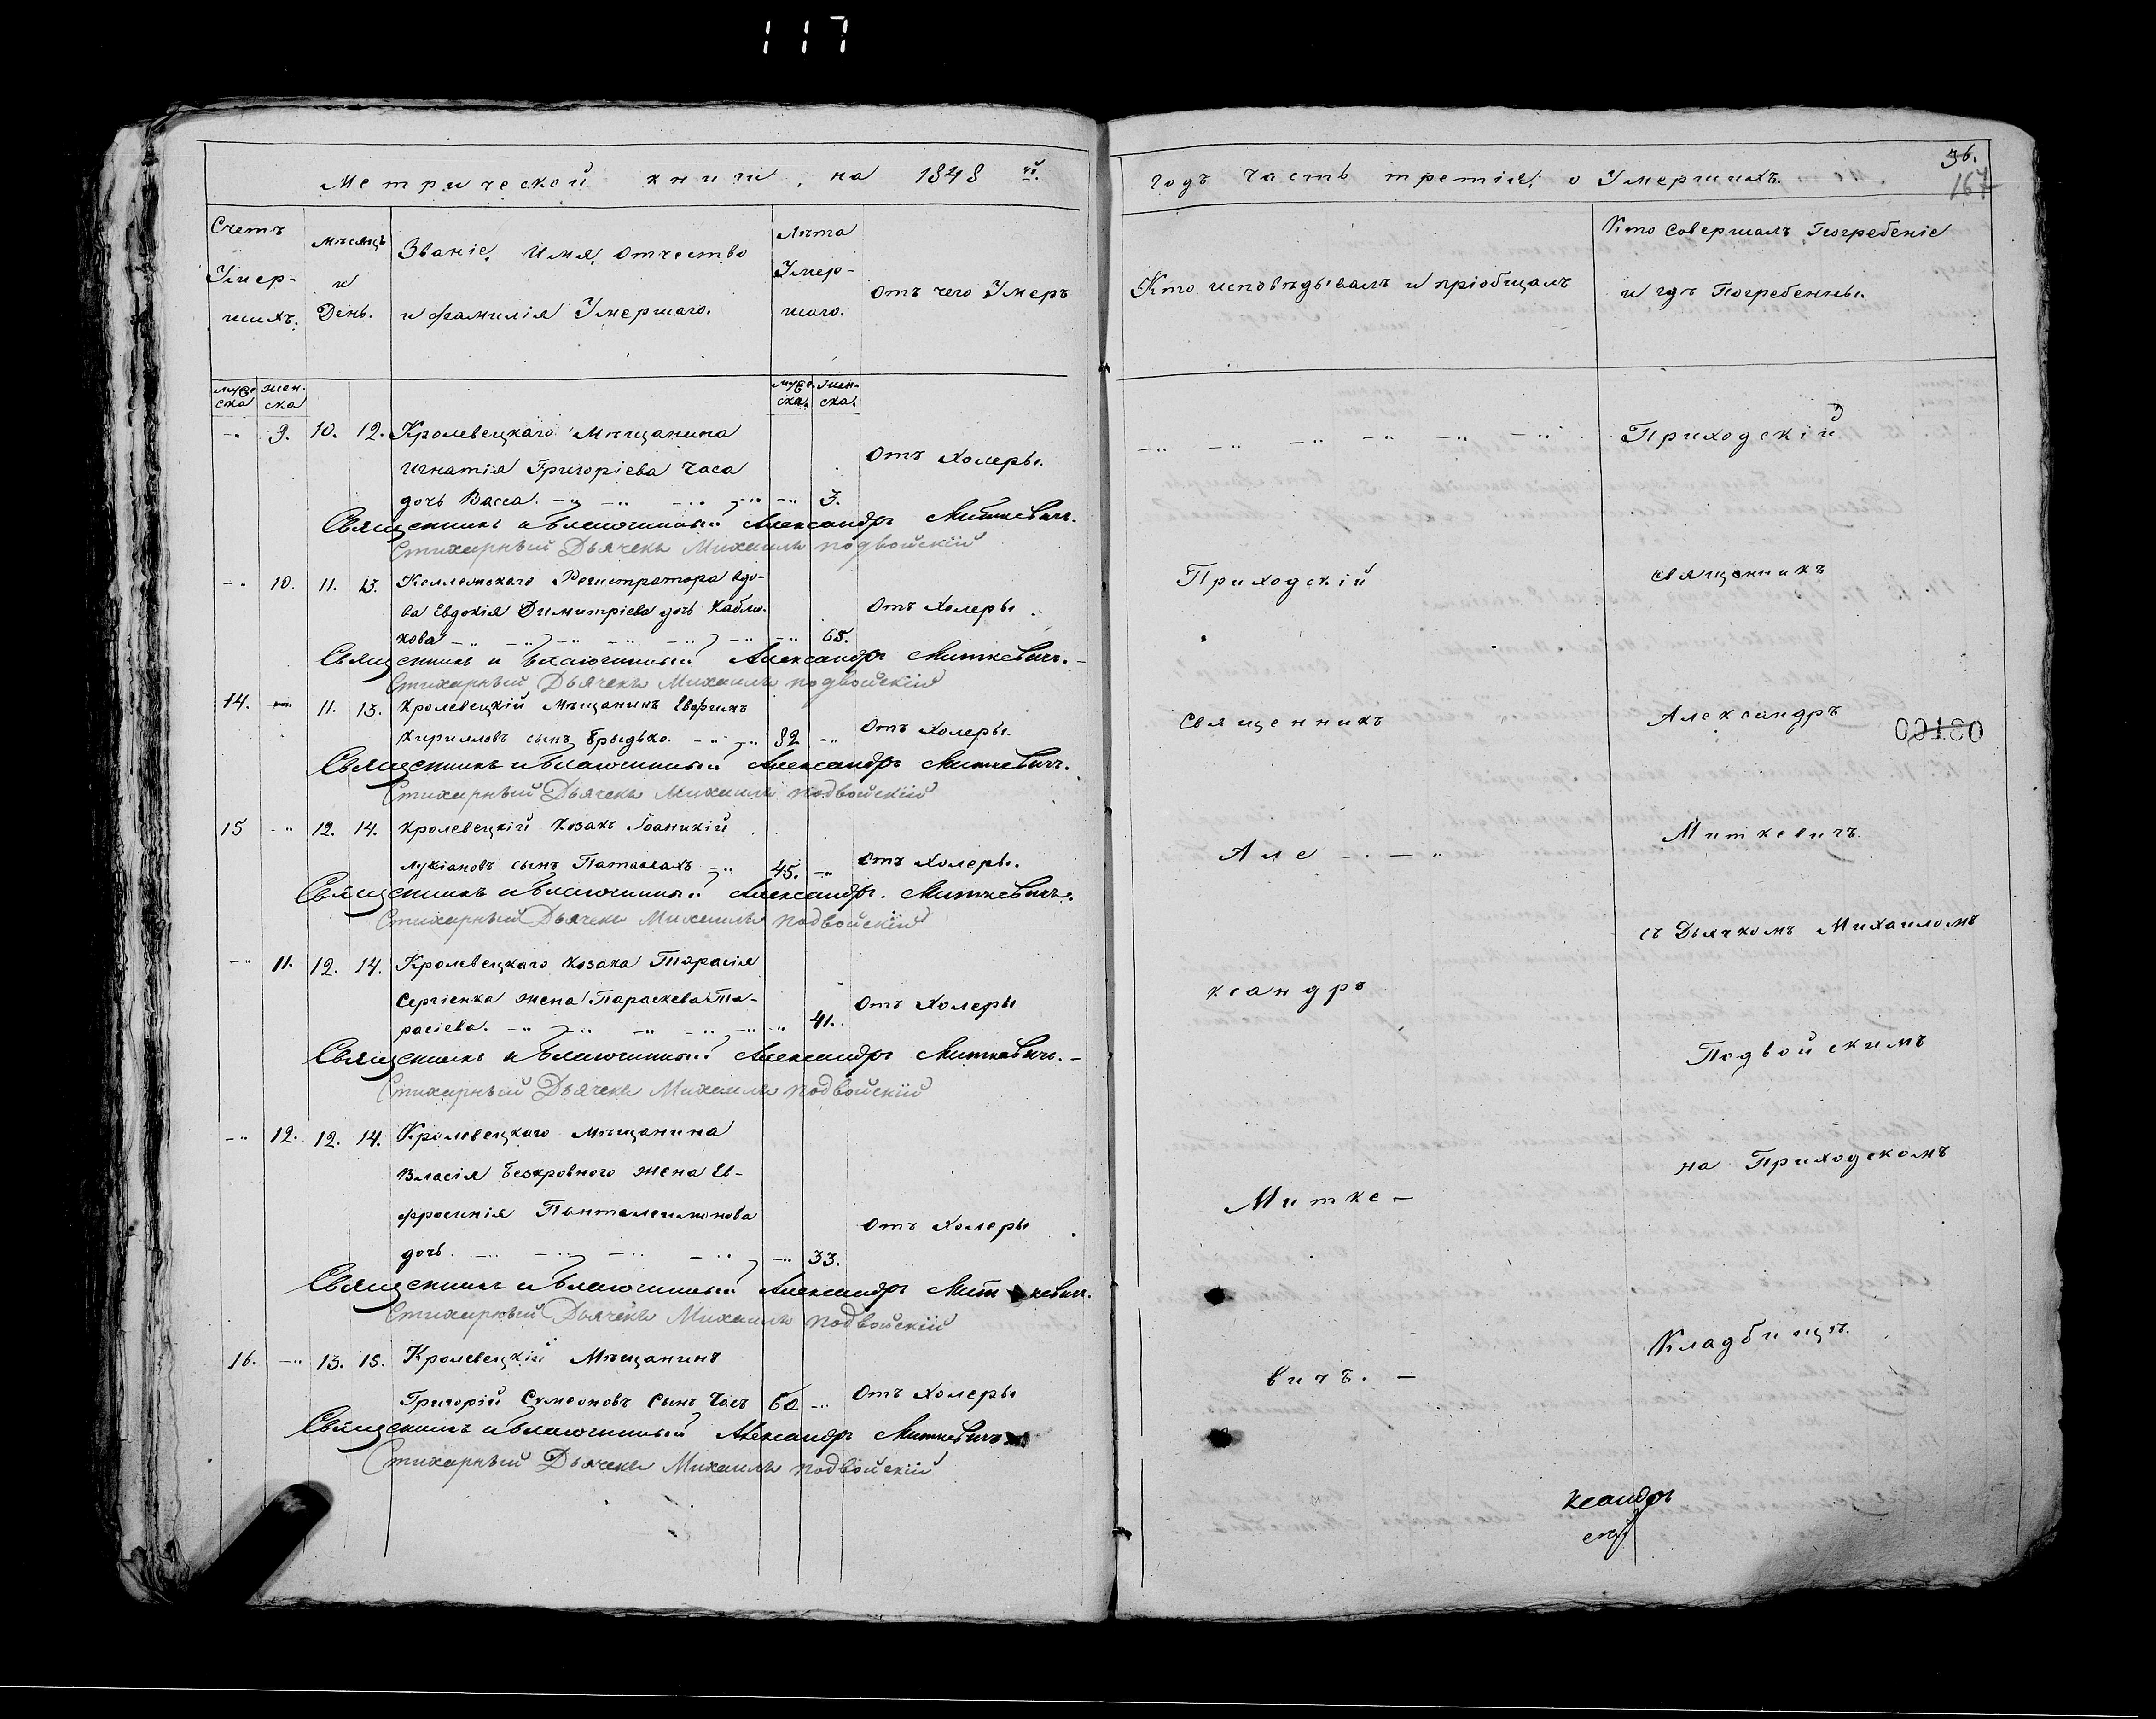 117
Метрической книги, на 1848 й.
Счетъ
Умер-
шихъ.
мѣсяцъ
и
День.
Званіе, Имя, Отчество
и фамилія Умершаго.
Лѣта
Умер-
шаго.
Отъ чего Умеръ
муже.
ска
жен.
ска
муже.
ска.
жен.
ска.
-" 9. 10. 12. Кролевецкаго Мѣщанина
Игнатія Григоріева Часа
Отъ Холеры.
дочь Васса. -" 3.
Священникъ и Благочинный Александръ Миткевичъ.
Стихарный Дьячекъ Михаилъ Подвойскій
-" 10. 11. 13. Коллежскаго Регистратора вдо-
ва Евдокія Димитріева дочь Кабло-
Отъ Холеры.
кова -" 65.
Священникъ и Благочинный Александръ Миткевичъ.-
Стихарный Дьячекъ Михаилъ Подвойскій
14. -" 11. 13. Кролевецкій Мѣщанинъ
Кириловъ сынъ -" -" Отъ Холеры.
Священникъ и Благочинный Александръ Миткевичъ.
Стихарный Дьячекъ Михаилъ Подвойскій
15 -" 12. 14. Кролевецкій Козакъ Іоаникій
Лукіановъ сынъ -" 45. -" Отъ Холеры.
Священникъ и Благочинный Александръ. Миткевичъ.
Стихарный Дьячекъ Михаилъ Подвойскій
-" 11. 12. 14. Кролевецкаго Козака Тарасія
Сергіенка жена Параскева Та-
Отъ Холеры
расіева. -" 41.
Священникъ и Благочинный Александръ Миткевичъ.-
Стихарный Дьячекъ Михаилъ Подвойскій
-" 12. 12. 14. Кролевецкаго Мѣщанина
Власія Безкровного жена Ев-
фросинія Пантелеимонова
Отъ Холеры
дочь. -" 33.
Священникъ и Благочинный Александръ Миткевичъ.
Стихарный Дьячекъ Михаилъ Подвойскій
16. -" 13. 15. Кролевецкій Мѣщанинъ
Григорій Сумеоновъ Сынъ Часъ 60 -" Отъ Холеры
Священникъ и Благочинный Александръ Миткевичъ
Стихарный Дьячекъ Михаилъ Подвойскій
годъ часть третія, о Умершихъ.
36.
167
Кто исповѣдывалъ и пріобщалъ
Кто Совершалъ Погребеніе
и гдѣ Погребенны.
-" -" -" -" -" -"
Приходскій
Священникъ
Але -" -"
ксандръ
Митке -
вичъ. -
Приходскій
священникъ
Александръ
Миткевичъ.
съ Дьячкомъ Михаиломъ
Подвойскимъ
на Приходскомъ
Кладбищѣ.
ксандръ